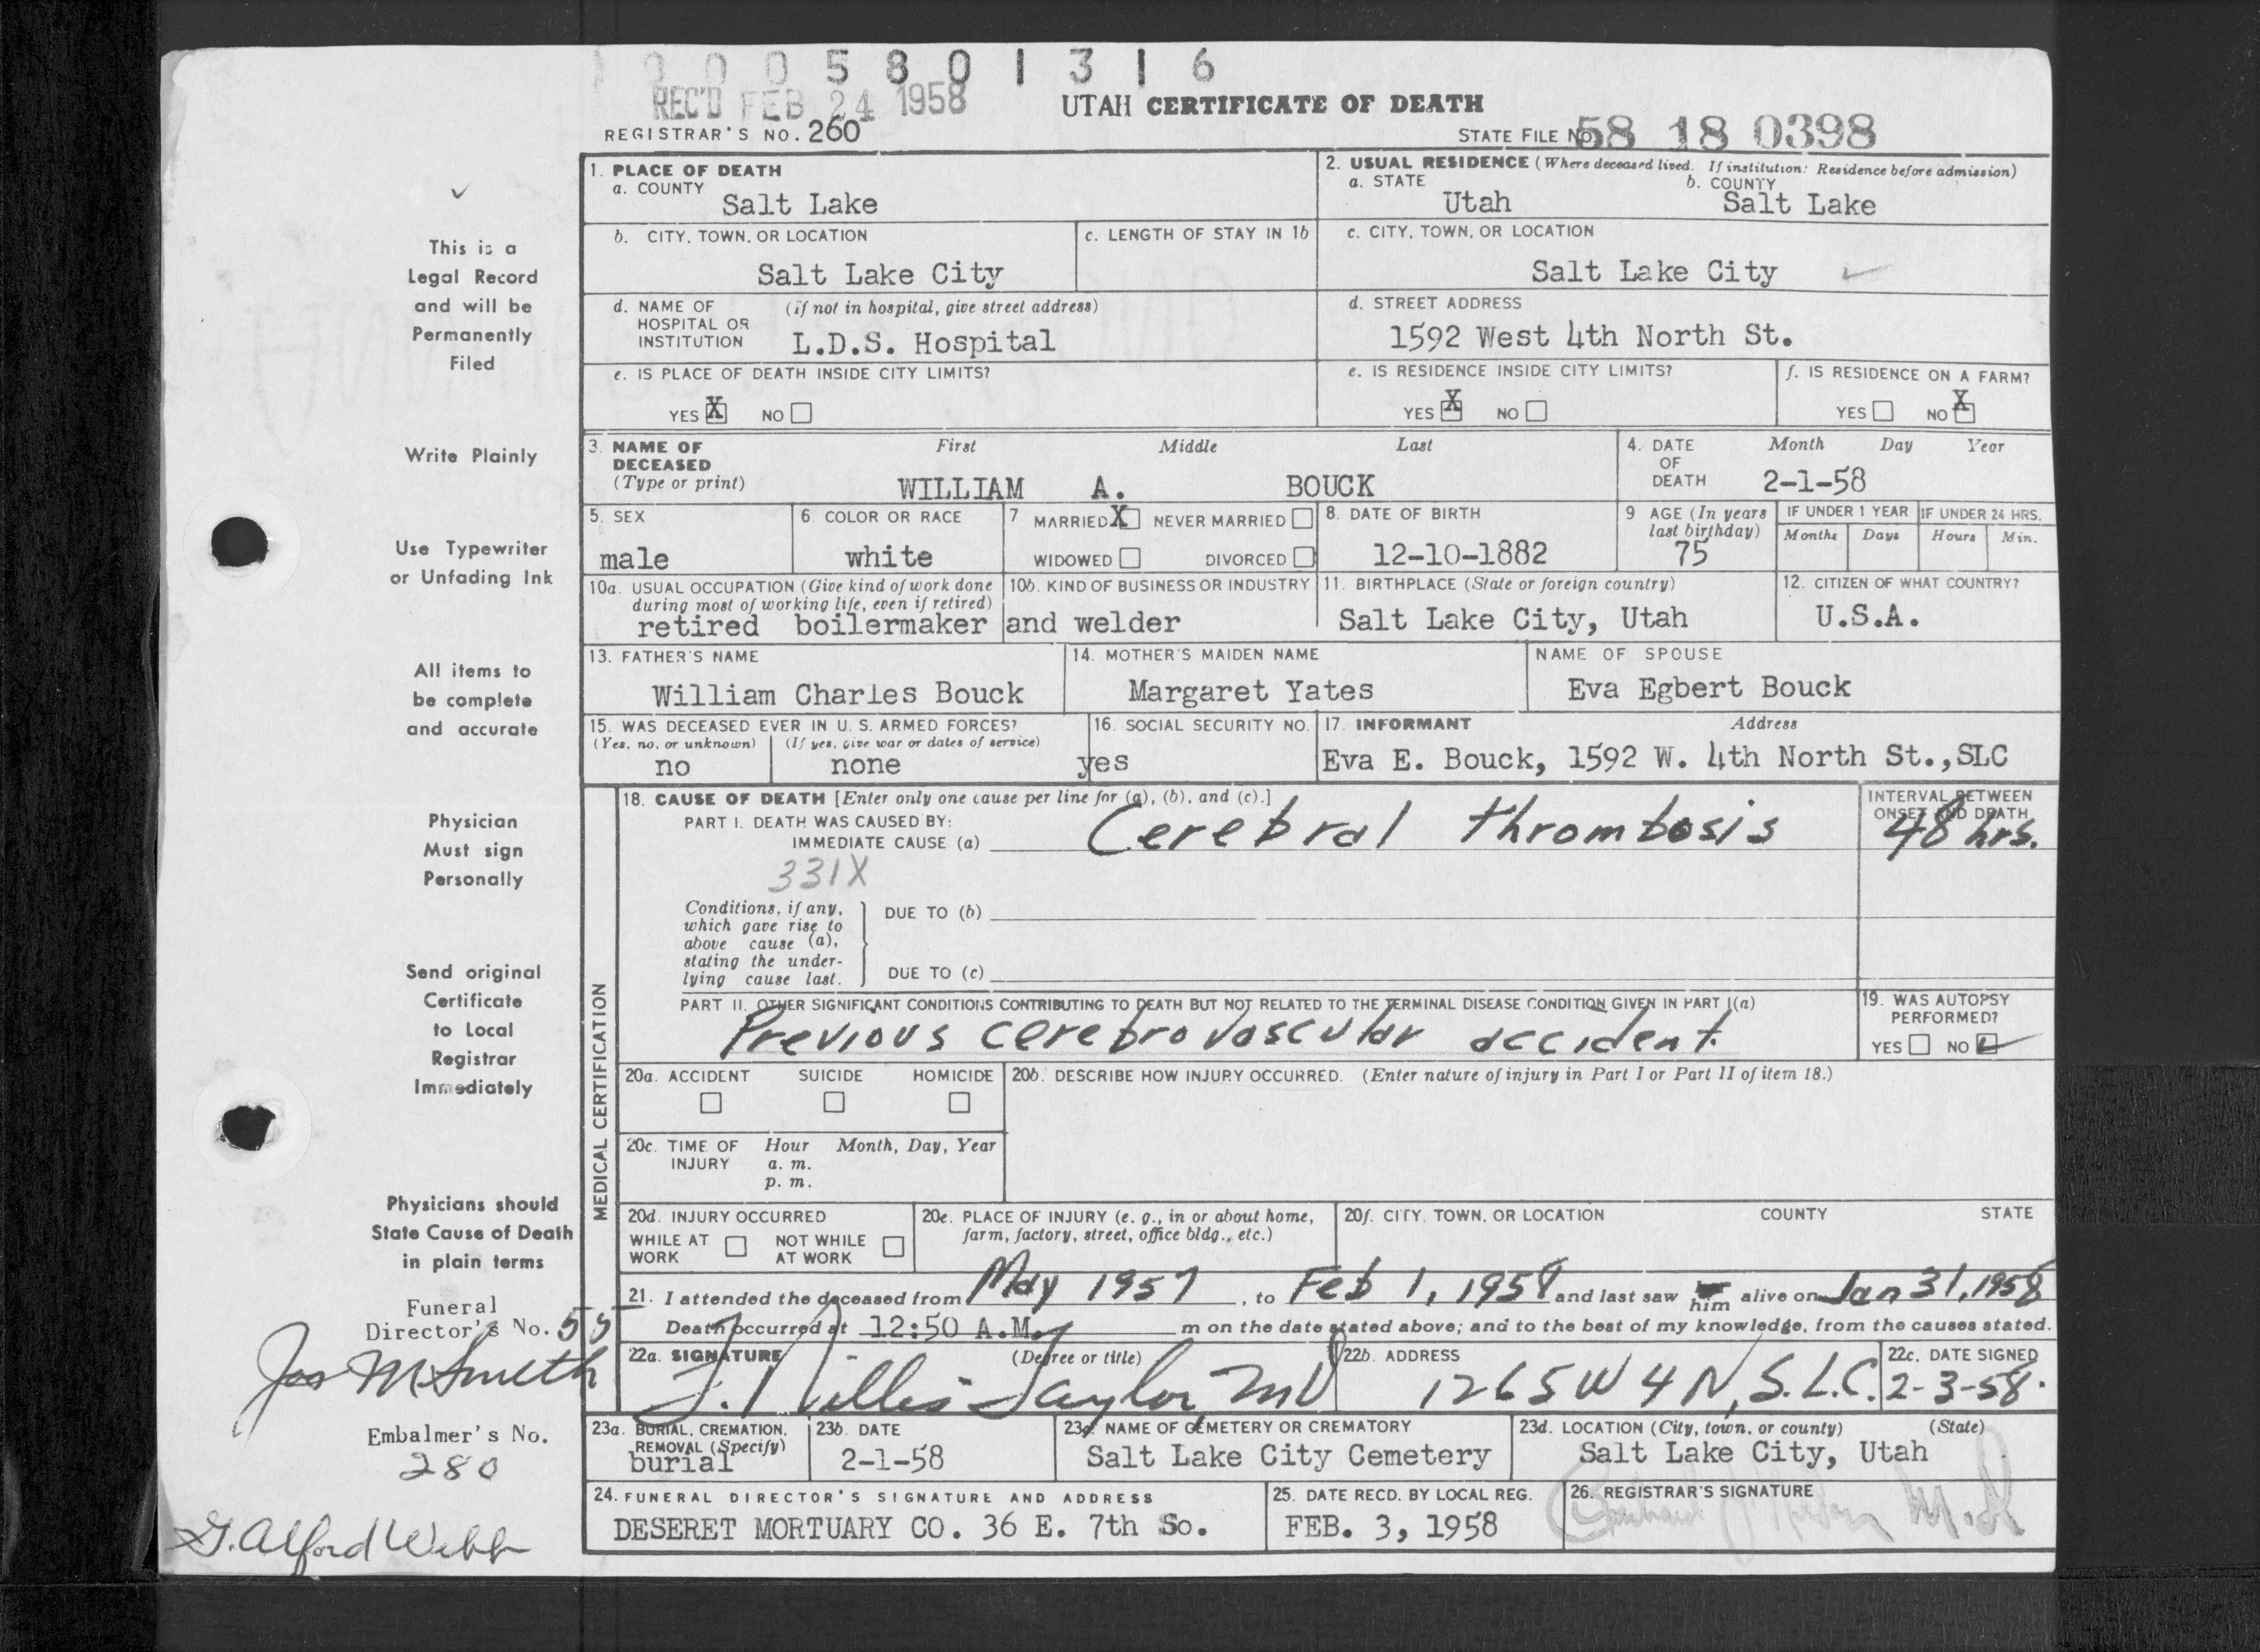 0 0 0 5 8 0 1 3 1 6
REC'D FEB 24 1958
UTAH CERTIFICATE OF DEATH
REGISTRAR'S NO. 260
STATE FILE NO. 58 18 0398
This is a
Legal Record
and will be
Permanently
Filed
Write Plainly
Use Typewriter
or Unfading Ink
All items to
be complete
and accurate
Physician
Must sign
Personally
Send original
Certificate
to Local
Registrar
Immediately
Physicians should
State Cause of Death
in plain terms
Funeral
Director's No. 55
Jos M Smith
Embalmer's No.
280
G. Alford Webb
1. PLACE OF DEATH
a. COUNTY
Salt Lake
2. USUAL RESIDENCE (Where deceased lived. If institution: Residence before admission)
a. STATE b. COUNTY
Utah Salt Lake
b. CITY, TOWN, OR LOCATION
Salt Lake City
c. LENGTH OF STAY IN 1b
c. CITY, TOWN, OR LOCATION
Salt Lake City
d. NAME OF (if not in hospital, give street address)
HOSPITAL OR
INSTITUTION L.D.S. Hospital
d. STREET ADDRESS
1592 West 4th North St.
e. IS PLACE OF DEATH INSIDE CITY LIMITS?
YES X NO
e. IS RESIDENCE INSIDE CITY LIMITS?
YES X NO
f. IS RESIDENCE ON A FARM?
YES NO X
3. NAME OF First Middle Last
DECEASED
(Type or print) WILLIAM A. BOUCK
4. DATE Month Day Year
OF
DEATH 2-1-58
5. SEX
male
6. COLOR OR RACE
white
7. MARRIED X NEVER MARRIED
WIDOWED DIVORCED
8. DATE OF BIRTH
12-10-1882
9 AGE (In years
last birthday)
75
IF UNDER 1 YEAR IF UNDER 24 HRS.
Months Days Hours Min.
10a. USUAL OCCUPATION (Give kind of work done
during most of working life, even if retired)
10b. KIND OF BUSINESS OR INDUSTRY
retired boilermaker and welder
11. BIRTHPLACE (State or foreign country)
Salt Lake City, Utah
12. CITIZEN OF WHAT COUNTRY?
U.S.A.
13. FATHER'S NAME
William Charles Bouck
14. MOTHER'S MAIDEN NAME
Margaret Yates
NAME OF SPOUSE
Eva Egbert Bouck
15. WAS DECEASED EVER IN U. S. ARMED FORCES?
(Yes, no, or unknown) (If yes, give war or dates of service)
no none
16. SOCIAL SECURITY NO.
yes
17. INFORMANT Address
Eva E. Bouck, 1592 W. 4th North St.,SLC
MEDICAL CERTIFICATION
18. CAUSE OF DEATH [Enter only one cause per line for (a), (b), and (c).]
PART I. DEATH WAS CAUSED BY:
IMMEDIATE CAUSE (a) Cerebral thrombosis
INTERVAL BETWEEN
ONSET AND DEATH
48 hrs.
331X
Conditions, if any,
which gave rise to
above cause (a),
stating the under-
lying cause last.
DUE TO (b)
DUE TO (c)
PART II. OTHER SIGNIFICANT CONDITIONS CONTRIBUTING TO DEATH BUT NOT RELATED TO THE TERMINAL DISEASE CONDITION GIVEN IN PART I(a)
Previous cerebrovascular accident.
19. WAS AUTOPSY
PERFORMED?
YES NO
20a. ACCIDENT SUICIDE HOMICIDE
20b. DESCRIBE HOW INJURY OCCURRED. (Enter nature of injury in Part I or Part II of item 18.)
20c. TIME OF Hour Month, Day, Year
INJURY a. m.
p. m.
20d. INJURY OCCURRED
WHILE AT NOT WHILE
WORK AT WORK
20e. PLACE OF INJURY (e. g., in or about home,
farm, factory, street, office bldg., etc.)
20f. CITY, TOWN, OR LOCATION COUNTY STATE
21. I attended the deceased from May 1957, to Feb 1, 1958 and last saw him alive on Jan 31, 1958
Death occurred at 12:50 A.M. m on the date stated above; and to the best of my knowledge, from the causes stated.
22a. SIGNATURE (Degree or title)
J. Villis Taylor MD
22b. ADDRESS
1265 W 4 N, S.L.C.
22c. DATE SIGNED
2-3-58.
23a. BURIAL, CREMATION,
REMOVAL (Specify)
burial
23b. DATE
2-1-58
23c. NAME OF CEMETERY OR CREMATORY
Salt Lake City Cemetery
23d. LOCATION (City, town, or county) (State)
Salt Lake City, Utah
24. FUNERAL DIRECTOR'S SIGNATURE AND ADDRESS
DESERET MORTUARY CO. 36 E. 7th So.
25. DATE RECD. BY LOCAL REG.
FEB. 3, 1958
26. REGISTRAR'S SIGNATURE
M.D.